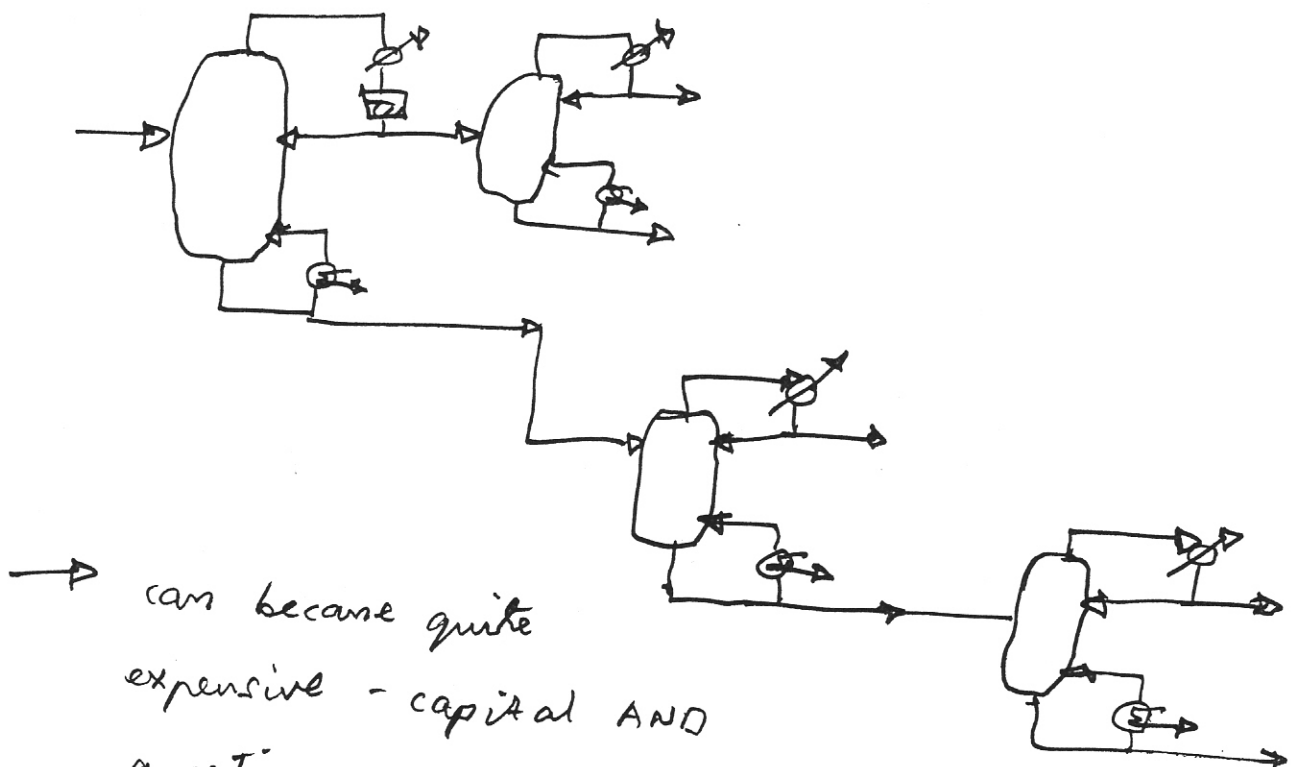 can became quite
expensive - capital AND